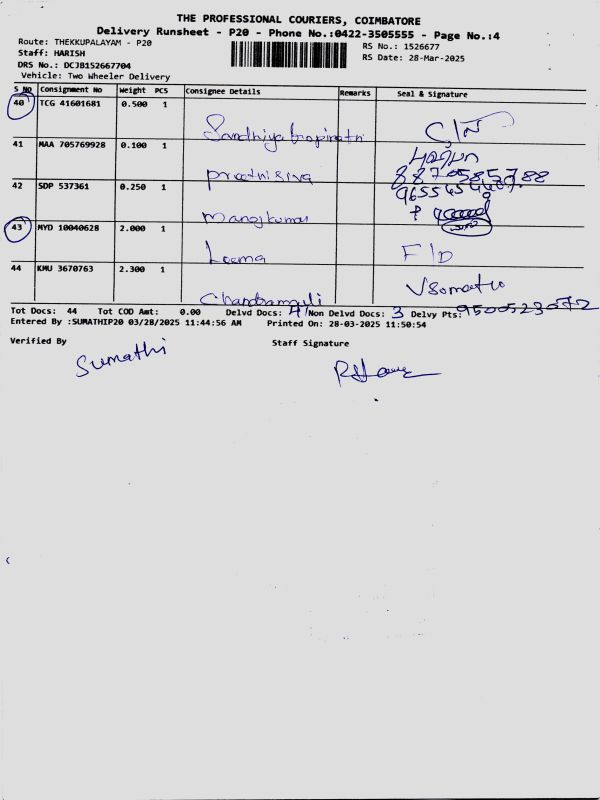 THE PROFESSIONAL COURIERS, COIMBATORE
Delivery Runsheet - P20 - Phone No.:0422-3505555 - Page No.:4
Route: THEKKUPALAYAM - P20
Staff: HARISH
DRS No.: DCJB152667704
Vehicle: Two Wheeler Delivery
RS No.: 1526677
RS Date: 28-Mar-2025
S No Consignment No Weight PCS Consignee Details Remarks Seal & Signature
40 TCG 41601681 0.500 1 Sandhiya Gopinath
41 MAA 705769928 0.100 1 preethi siva 8870585788
42 SDP 537361 0.250 1 manojkumar
43 MYD 10040628 2.000 1 Leema F/D
44 KMU 3670763 2.300 1 Chandramouli
Tot Docs: 44 Tot COD Amt: 0.00 Delvd Docs: 41 Non Delvd Docs: 3 Delvy Pts: 9500523072
Entered By :SUMATHIP20 03/28/2025 11:44:56 AM Printed On: 28-03-2025 11:50:54
Verified By Staff Signature
Sumathi